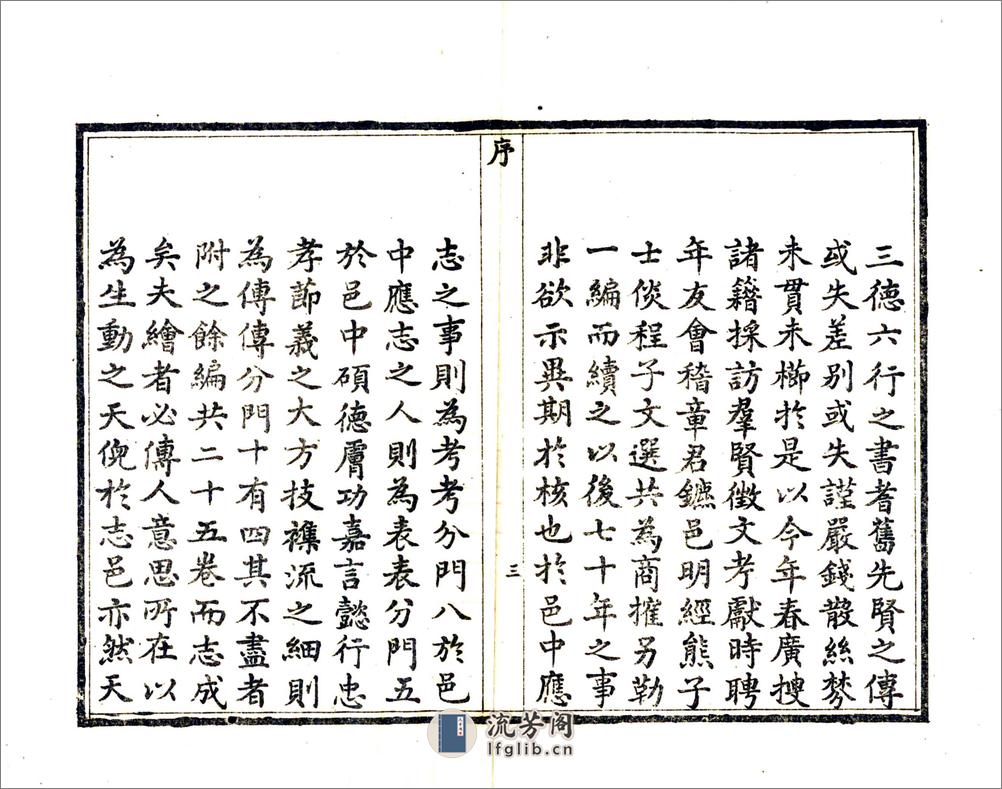 三德六行之書耆舊先賢之傳
或失差別或失謹嚴錢散絲棼
未貫未櫛於是以今年春廣搜
諸籍採訪羣賢徵文考獻時聘
年友會稽章君鑣邑明經熊子
士倓程子文選共為商搉另勒
一編而續之以後七十年之事
非欲示異期於核也於邑中應
序
三
志之事則為考考分門八於邑
中應志之人則為表表分門五
於邑中碩德膚功嘉言懿行忠
孝節義之大方技襍流之細則
為傳傳分門十有四其不盡者
附之餘編共二十五卷而志成
矣夫繪者必傳人意思所在以
為生動之天倪於志邑亦然天
流芳阁
lfglib.cn